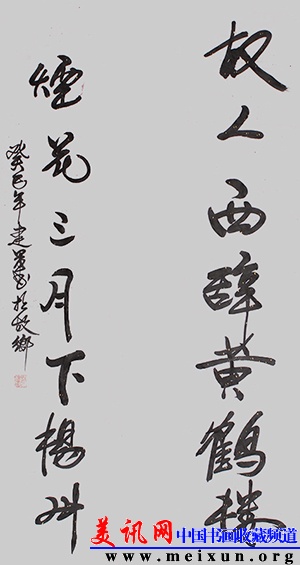 故人西辞黄鹤楼
烟花三月下揚州
癸巳年建华书於故鄉
美讯网 中国书画收藏网
www.meixun.org